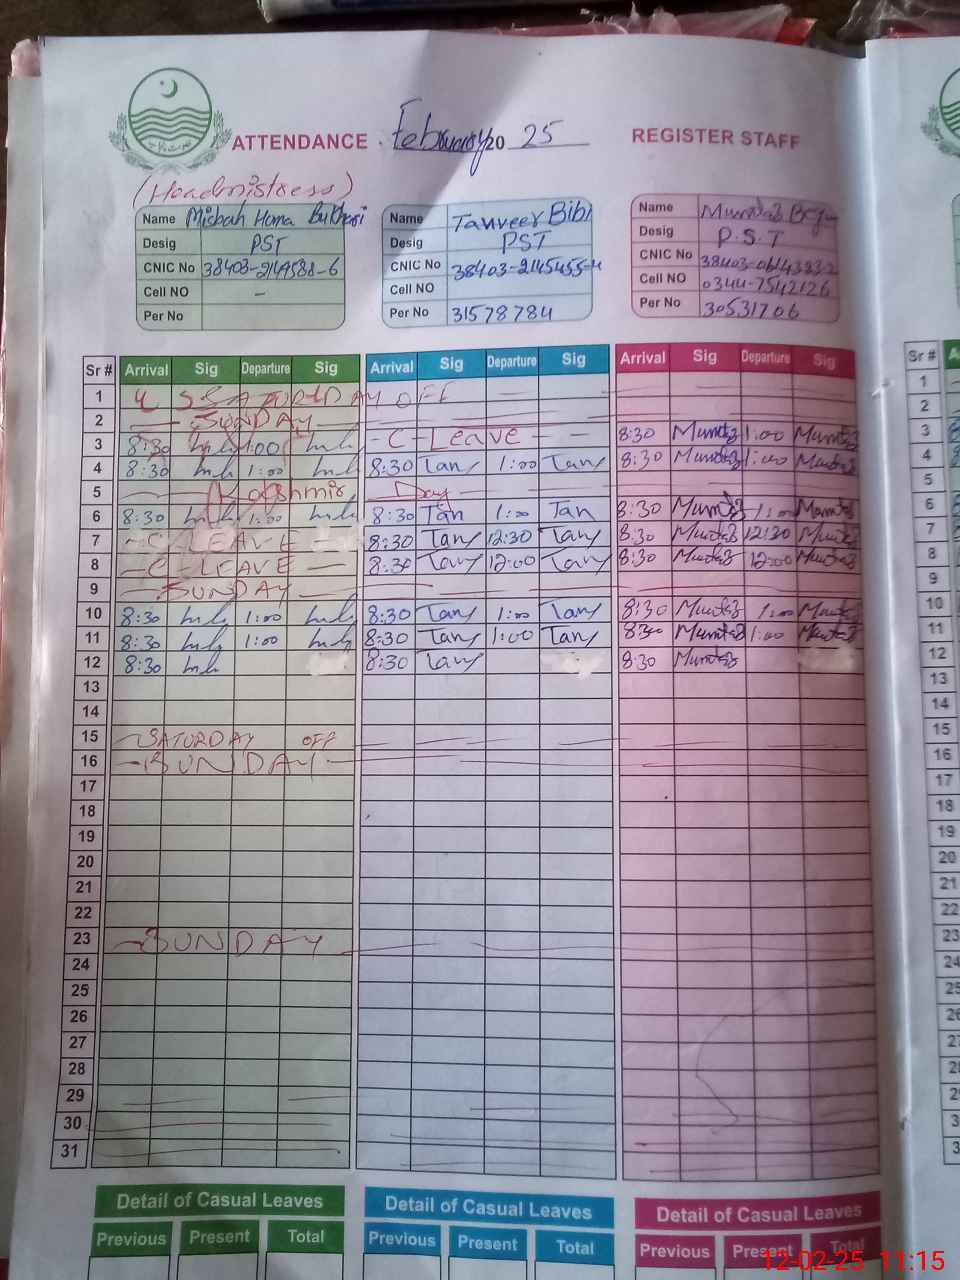 ATTENDANCE February 20 25 REGISTER STAFF
(Headmistress)
Name Misbah Huma Bukhari Name Tanveer Bibi Name Mumtaz Begum
Desig PST Desig PST Desig P.S.T
CNIC No CNIC No 38403-2145455-4 CNIC No
Cell NO - Cell NO Cell NO 0344-7542126
Per No Per No 31578784 Per No 30531706
Sr # Arrival Sig Departure Sig Arrival Sig Departure Sig Arrival Sig Departure Sig
1 SATURDAY OFF
2 SUNDAY
3 8:30 1:00 - C - Leave - - 8:30 Mumtaz 1:00 Mumtaz
4 8:30 1:00 8:30 Tanv 1:00 Tanv 8:30 Mumtaz 1:00 Mumtaz
5 Kashmir Day
6 8:30 1:00 8:30 Tan 1:00 Tan 8:30 Mumtaz 1:00 Mumtaz
7 - C - LEAVE - 8:30 Tanv 12:30 Tanv 8:30 Mumtaz 12:30 Mumtaz
8 - C - LEAVE - 8:30 Tanv 12:00 Tanv 8:30 Mumtaz 12:00 Mumtaz
9 - SUNDAY
10 8:30 1:00 8:30 Tanv 1:00 Tanv 8:30 Mumtaz 1:00 Mumtaz
11 8:30 1:00 8:30 Tanv 1:00 Tanv 8:30 Mumtaz 1:00 Mumtaz
12 8:30 8:30 Tanv 8:30 Mumtaz
13
14
15 - SATURDAY OFF
16 - SUNDAY -
17
18
19
20
21
22
23 - SUNDAY
24
25
26
27
28
29
30
31
Detail of Casual Leaves Detail of Casual Leaves Detail of Casual Leaves
Previous Present Total Previous Present Total Previous Present Total
12-02-25 11:15